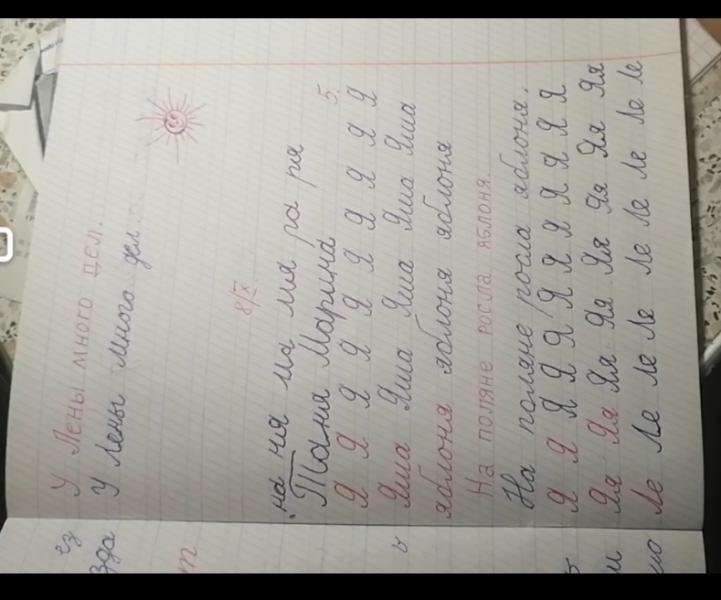 У Лены много дел.
У Лены много дел.
8/X
на ня ма мя ра ря
Таня Марина 5.
Я Я Я Я Я Я Я Я Я Я
Яша Яша Яша Яша Яша
яблоня яблоня яблоня
На поляне росла яблоня.
На поляне росла яблоня.
Я Я Я Я Я Я Я Я Я Я
Яя Яя Яя Яя Яя Яя Яя Яя
Ле Ле Ле Ле Ле Ле Ле Ле Ле